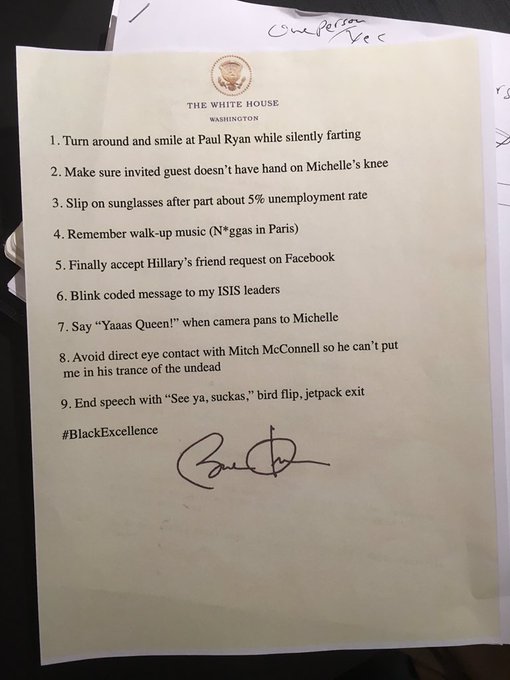 one person
THE WHITE HOUSE
WASHINGTON
1. Turn around and smile at Paul Ryan while silently farting
2. Make sure invited guest doesn't have hand on Michelle's knee
3. Slip on sunglasses after part about 5% unemployment rate
4. Remember walk-up music (N*ggas in Paris)
5. Finally accept Hillary's friend request on Facebook
6. Blink coded message to my ISIS leaders
7. Say “Yaaas Queen!” when camera pans to Michelle
8. Avoid direct eye contact with Mitch McConnell so he can't put
me in his trance of the undead
9. End speech with “See ya, suckas,” bird flip, jetpack exit
#BlackExcellence